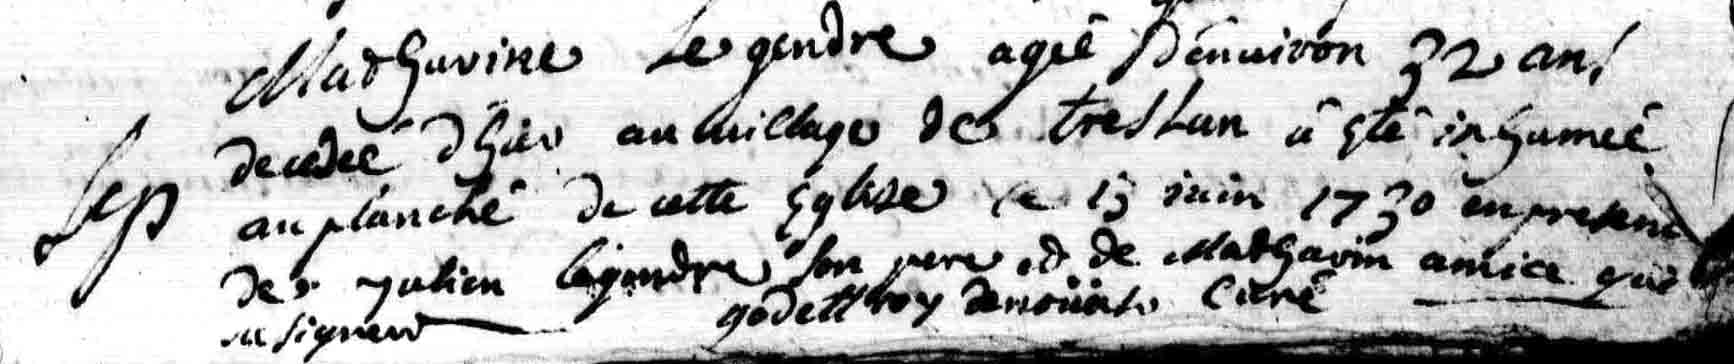 Mathurine Legendre agéé d'enuiron 32 ans
decedeé d'hier au uillage de treslan â eté inhumeé
au planché de cette Eglise ce 15 juin 1730 en presence
Sep
de julien legendre son pere et de Mathurin amice qui
ne signent godeffroy Curé